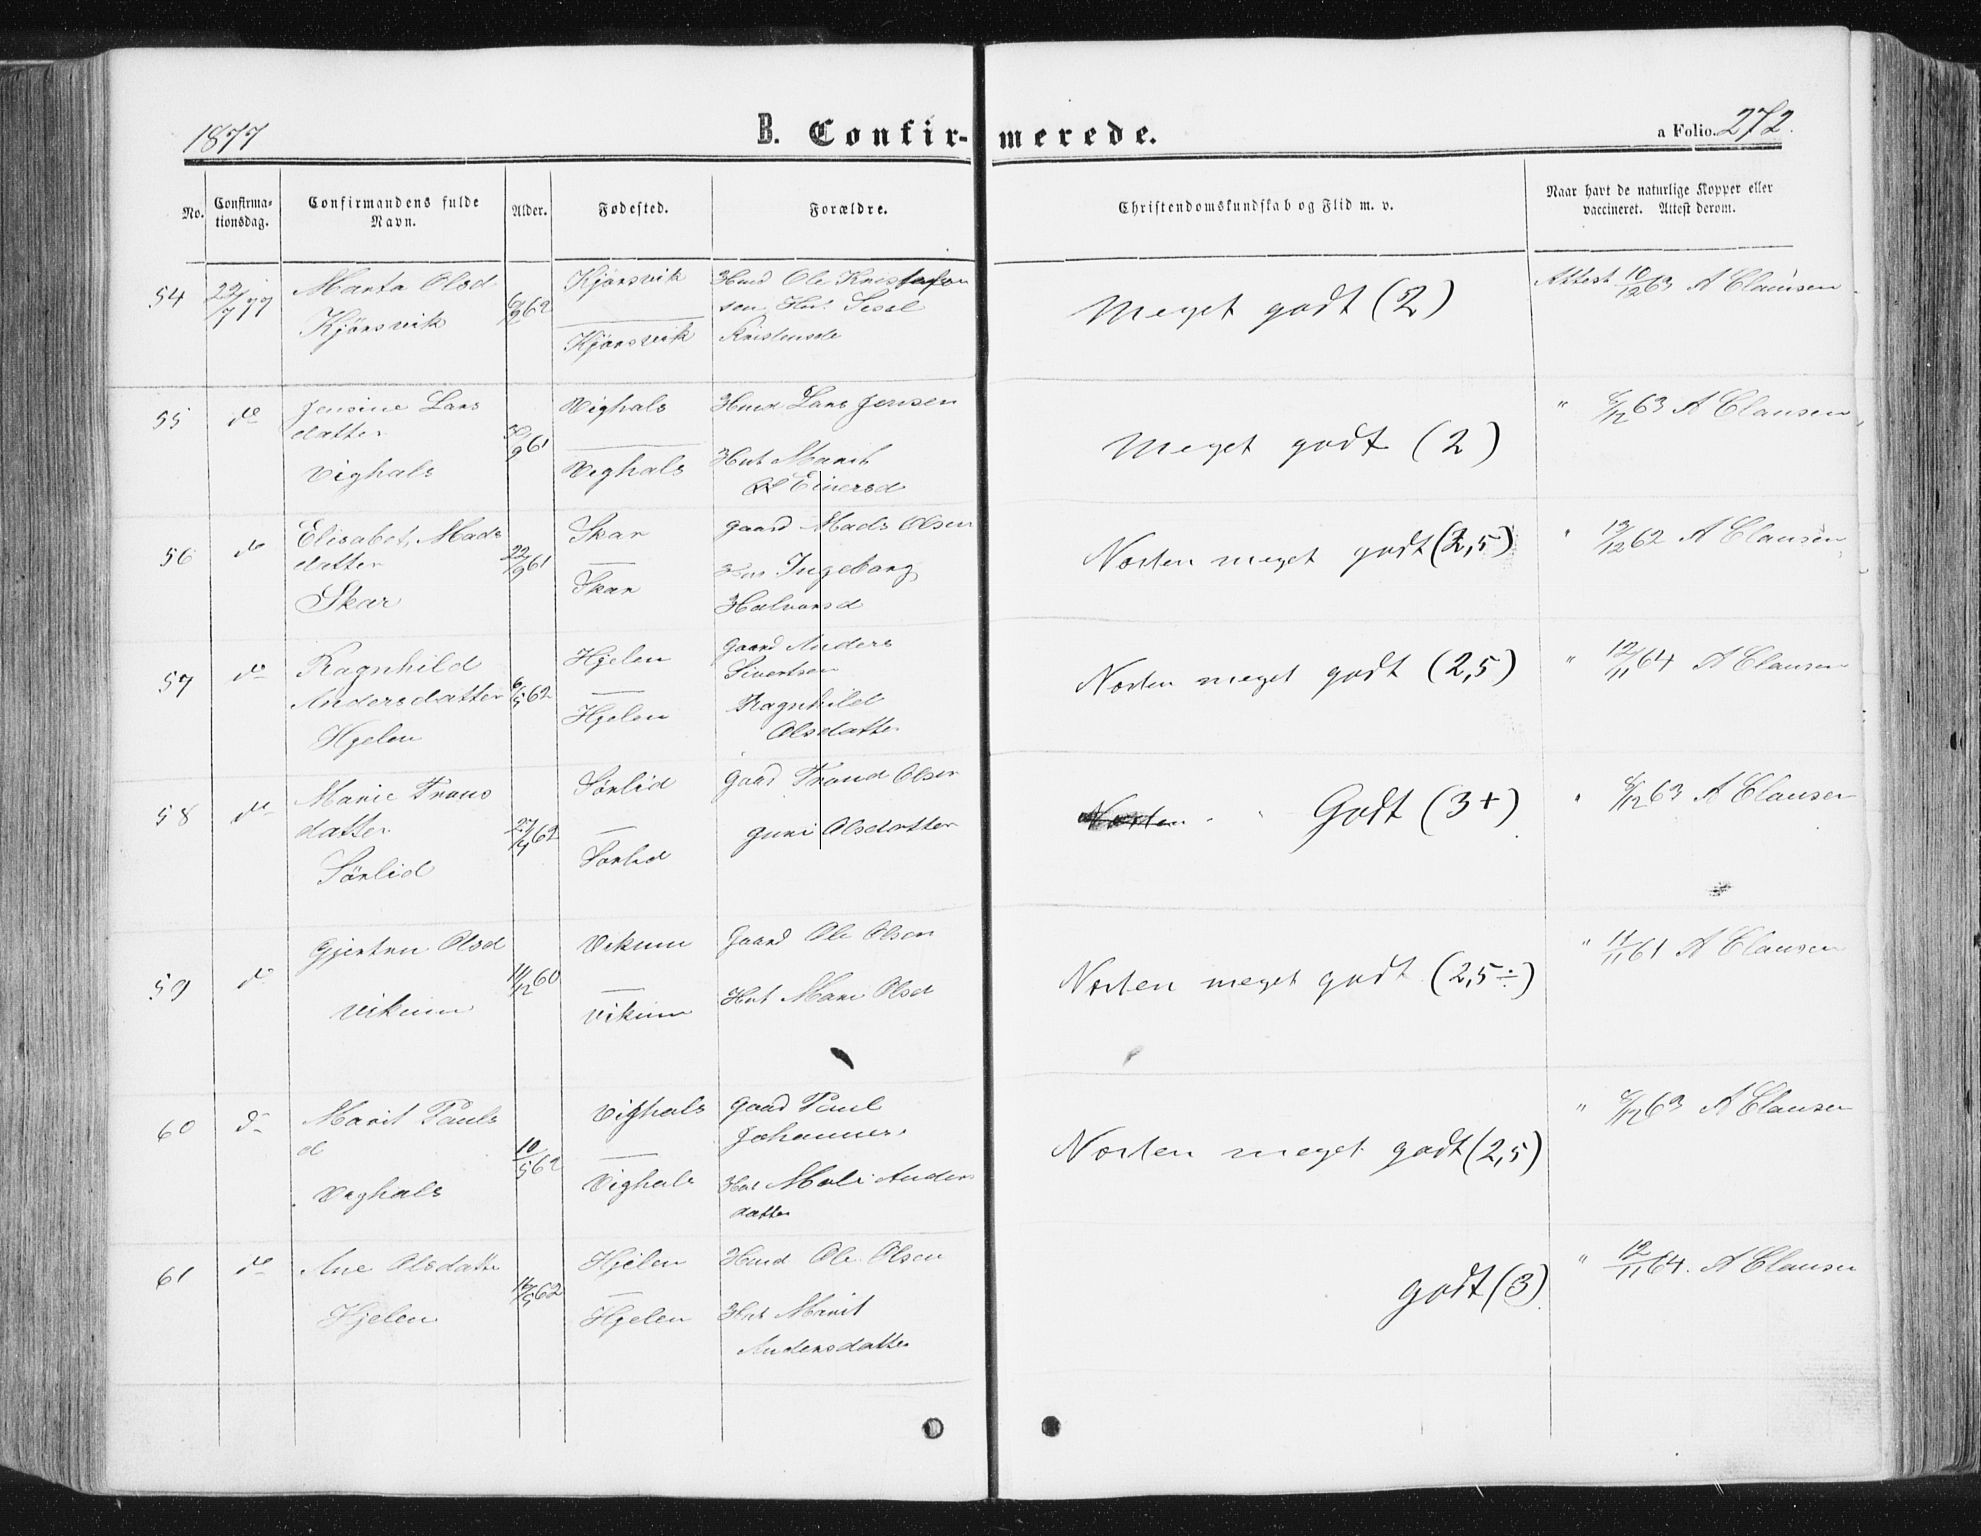 1877
B. Confirmerede.
a Folio. 272.
No.
Confirmationsdag.
Confirmandens fulde Navn.
Alder.
Fødested.
Forældre.
Christendomskundskab og Flid m. v.
Naar havt de naturlige Kopper eller
vaccineret. Attest derom.
54 22/7 77 Marta Olsd
Kjørsvik
6/9 62
Kjørsvik
Kjørsvik
Hmd Ole Kristofer
sen, Hut Sissel
Kristensdr
Meget godt (2)
Attest 10/12 63 A Clausen
55 do Jensine Lars
datter
Vighals
/9 61
Vighals
Vighals
Hmd Lars Jensen
Hut Marit
Einersd
Meget godt (2)
" /12 63 A Clausen
56 do Elisabet Mads
datter
Skar
22/9 61
Skar
Skar
Gaard Mads Olsen
Hut Ingeborg
Halvorsd
Næsten meget godt (2,5)
" 19/12 62 A Clausen
57 do Ragnhild
Andersdatter
Hjelen
6/5 62
Hjelen
Hjelen
Gaard Anders
Sivertsen
Ragnhild
Olsdatter
Næsten meget godt (2,5)
" 12/11 64 A Clausen
58 do Marie Trons
datter
Sørlid
27/4 62
Sørlid
Sørlid
Gaard Trond Olsen
Guri Olsdatter
Næsten Godt (3+)
" /12 63 A Clausen
59 do Gjertru Olsd
Vikum
11/12 60
Vikum
Vikum
Gaard Ole Olsen
Hut Mari Olsd
Næsten meget godt (2,5÷)
" 11/11 61 A Clausen
60 do Marit Pauls
d
Vighals
10/5 62
Vighals
Vighals
Gaard Paul
Johannes.
Hut Mali Anders
datter
Næsten meget godt (2,5)
" /12 63 A Clausen
61 do Ane Olsdatter
Hjelen
16/5 62
Hjelen
Hjelen
Hmd Ole Olsen
Hut Marit
Andersdatter
godt (3)
" 12/11 64. A Clausen